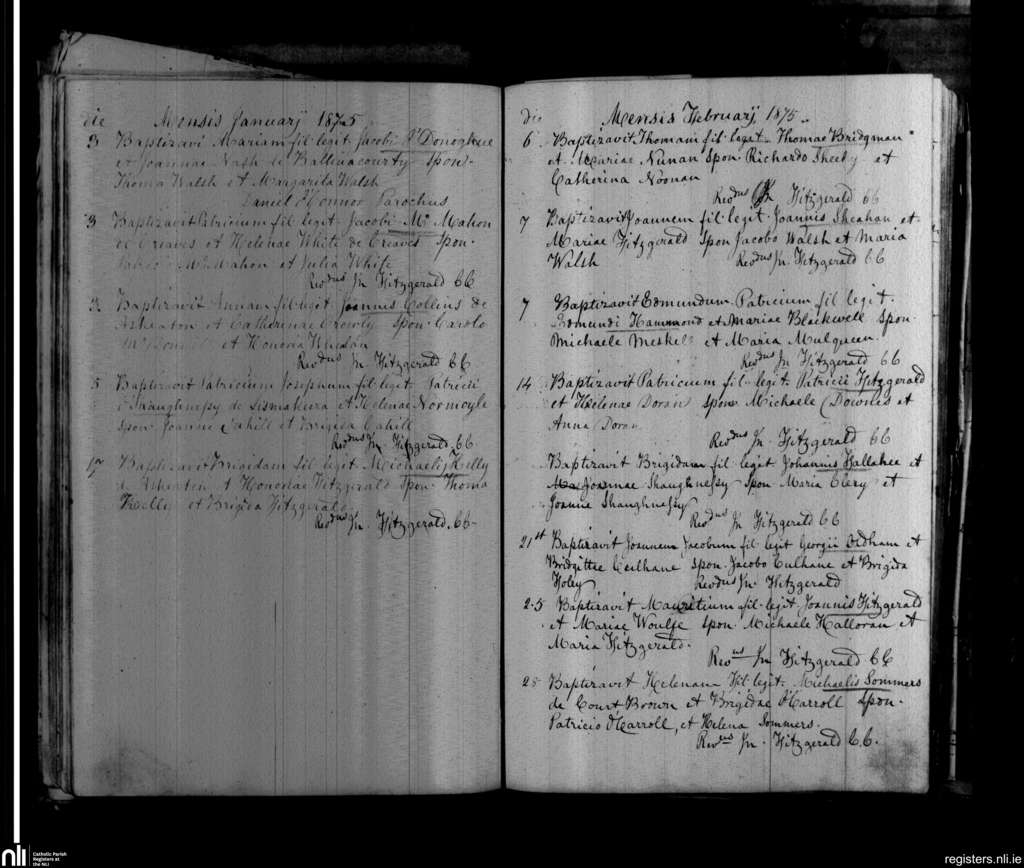 die Mensis Januarij 1875.
3 Baptizavi Mariam fil legit Jacobi O'Donoghue
et Joannae Nash de Ballinacourty Spon-
Thoma Walsh et Margarita Walsh
Daniel O'Connor Parochus
3 Baptizavit Patricium fil legit Jacobi Mc Mahon
de Creaves et Helenae White de Creaves Spon.
McMahon et Julia White
Revdus Jn Fitzgerald CC
3 Baptizavit Annam fil legit Joannis Collins de
Askeaton et Catherinae Crowly Spon Carolo
et Honoria Whelan
Revdus Jn Fitzgerald CC
5 Baptizavit Patricium Josephum fil legit Patricii
O'Shaughnessy de Lismakeera et Helenae Normoyle
Spon Joanne Cahill et Brigida Cahill
Revdus Jn Fitzgerald CC
17 Baptizavit Brigidam fil legit Michaelis Kelly
de Askeaton et Honoriae Fitzgerald Spon Thoma
Kelly et Brigida Fitzgerald
Revdus Jn. Fitzgerald. CC-
die Mensis Februarij 1875..
6 Baptizavit Thomam fil legit Thomae Bridgman
et Mariae Nunan Spon Richardo Sheehy et
Catherina Noonan
Revdus Jn Fitzgerald CC
7 Baptizavit Joannem fil legit Joannis Sheahan et
Mariae Fitzgerald Spon Jacobo Walsh et Maria
Walsh Revdus Jn Fitzgerald CC
7 Baptizavit Edmundum Patricium fil legit.
Edmundi Hammond et Mariae Blackwell Spon.
Michaele Meskell et Maria Mulqueen.
Revdus Jn Fitzgerald CC
14 Baptizavit Patricium fil legit Patricii Fitzgerald
et Helenae Doran Spon Michaele Downes et
Anna Doran
Revdus Jn Fitzgerald CC
Baptizavit Brigidam fil legit Johannis Hallahea et
Joannae Shaughnessy Spon Maria Clery et
Joanne Shaughnessy
Revdus Jn Fitzgerald CC
21st Baptizavit Joannem Jacobum fil legit Georgii Oldham et
Bridgittae Culhane Spon Jacobo Culhane et Brigida
Foley Revdus Jn. Fitzgerald
25 Baptizavit Mauritium fil legit Joannis Fitzgerald
et Mariae Woulfe Spon Michaele Halloran et
Maria Fitzgerald.
Revus Jn Fitzgerald CC
28 Baptizavit Helenam fil legit Michaelis Sommers
de Court Brown et Brigidae O'Carroll Spon.
Patricio O'Carroll, et Helena Sommers.
Revus Jn. Fitzgerald C.C.
nli Catholic Parish
Registers at
the NLI
registers.nli.ie